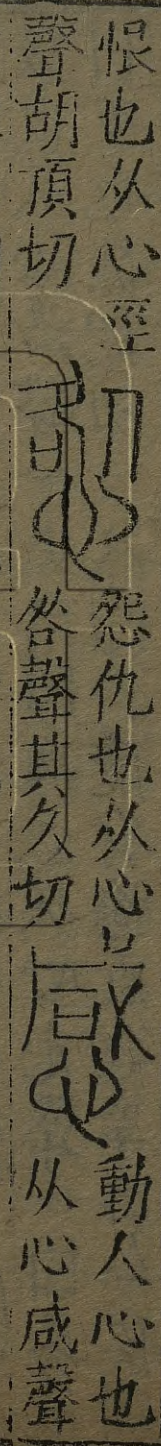 恨也从心巠
聲胡頂切
慦
怨仇也从心
咎聲其久切
感
動人心也
从心咸聲